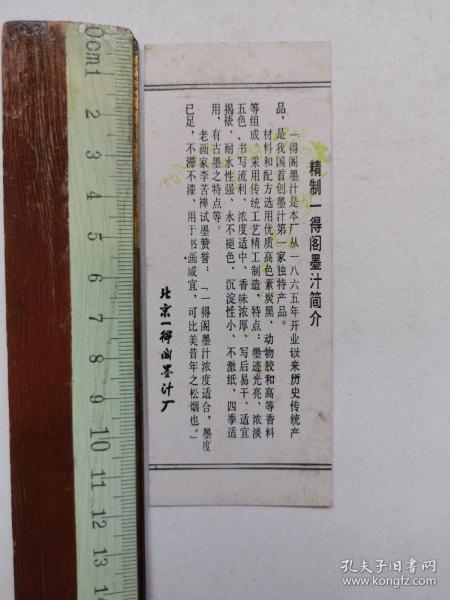 精制一得阁墨汁简介
一得阁墨汁是本厂从一八六五年开业以来历史传统产
品，是我国首创墨汁第一家独特产品。
材料和配方选用优质高色素炭黑、动物胶和高等香料
等组成。采用传统工艺精工制造，特点：墨迹光亮、浓淡
五色、书写流利、浓度适中、香味浓厚、写后易干、适宜
揭裱、耐水性强、永不褪色、沉淀性小、不激纸、四季适
用，有古墨之特点等。
老画家李苦禅试墨赞誉：「一得阁墨汁浓度适合，墨度
已足，不滞不漆，用于书画咸宜，可比美昔年之松烟也。」
北京一得阁墨汁厂
0cm1
2
3
4
5
6
7
8
9
10
11
12
13
14
孔夫子旧书网
www.kongfz.com